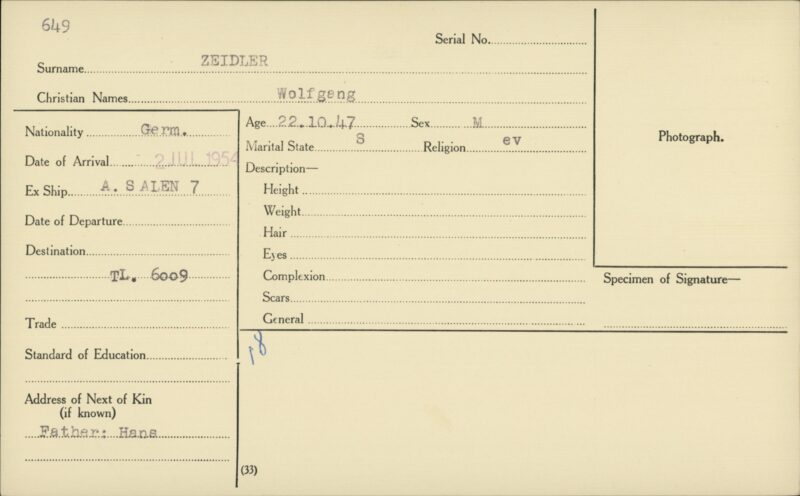 649
Serial No.
Surname ZEIDLER
Christian Names Wolfgang
Nationality Germ.
Age 22.10.47 Sex M
Marital State S Religion ev
Date of Arrival 2 JUL 1954
Description—
Ex Ship A. SALEN 7
Height
Weight
Date of Departure
Hair
Destination
Eyes
TL. 6009
Complexion
Scars
Trade
General
Photograph.
Specimen of Signature—
Standard of Education
18
Address of Next of Kin
(if known)
Father: Hans
(33)